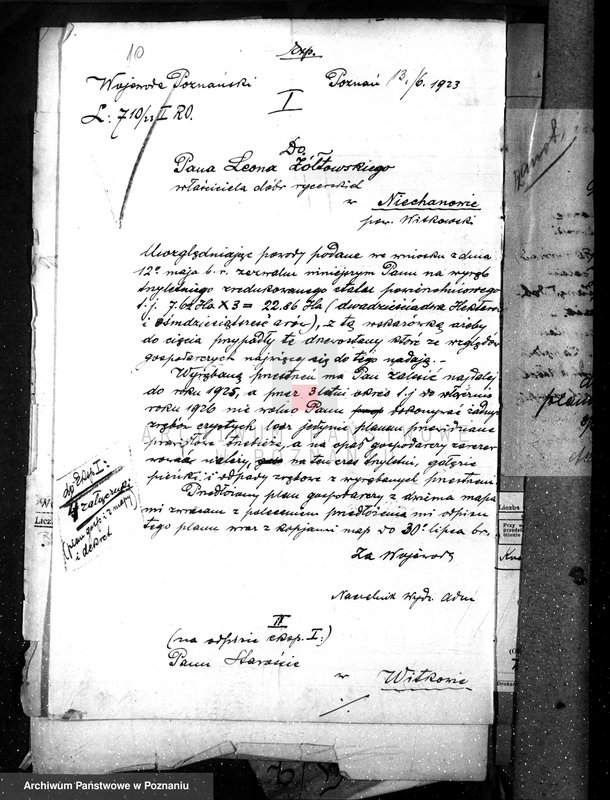 10
Exp.
Wojewoda Poznański
Poznań 13./6. 1923
L: 710/23 I RO.
I
Do
Pana Leona Żółtowskiego
właściciela dóbr rycerskich
w Niechanowie
pow. Witkowski
Uwzględniając powody podane we wniosku z dnia
12º maja b. r. zezwalam niniejszym Panu na wyręb
trzyletniego zredukowanego etatu powierzchniowego
t. j. 7.62 Ha X 3 = 22.86 Ha (dwadzieściadwa Hektary
i ośmdziesiątsześć arów), z tą wskazówką ażeby
do cięcia przypadły te drzewostany które ze względów
gospodarczych najwięcej się do tego nadają. -
Wyrąbaną przestrzeń ma Pan zalesić najdalej
do roku 1925, a przez 3 letni okres t. j. do
roku 1926 nie wolno Panu dokonywać żadnych
zrębów czystych lecz jedynie planem przewidziane
trzebieże, a na opał gospodarczy
należy, na ten czas trzyletni, gałęzie
pieńki i odpady zrębowe z wyrąbanych przestrzeni
Przedłożony plan gospodarczy z dwiema mapa
mi zwracam z poleceniem przedłożenia mi odpisu
tego planu wraz z kopjami map do 30º lipca br.
do Eksp. I:
4 załączniki
(plan gosp. i 2 mapy)
i dekret
Za Wojewodę
Naczelnik Wydz. Adm
II
(na odpisie eksp. I:)
Panu Staroście
w Witkowie
ARCHIWUM PAŃSTWOWE
W POZNANIU
Liczba
Przy w
przedst
mienie
Archiwum Państwowe w Poznaniu